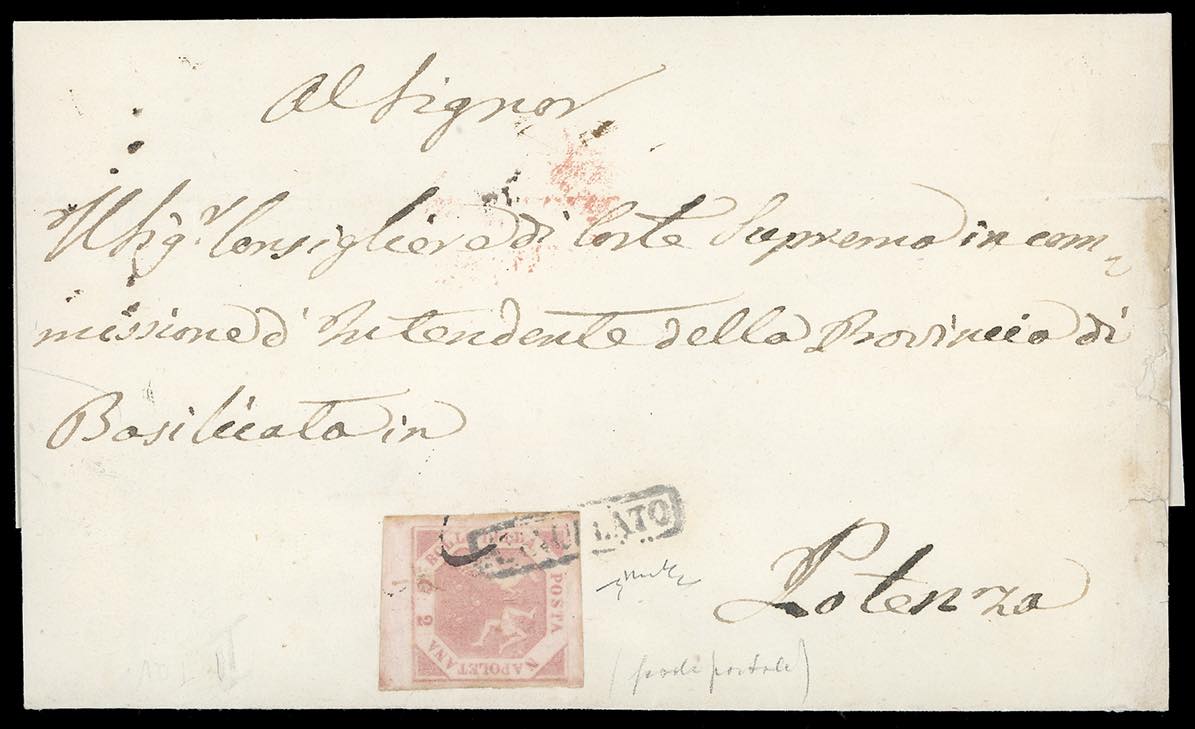 Al Signor
Il Sig.r Consigliere di Corte Suprema in com=
missione d'Intendente della Provincia di
Basilicata in
Potenza
ANNULLATO
BOLLO DELLA
POSTA
NAPOLETANA
G 2
(frode postale)